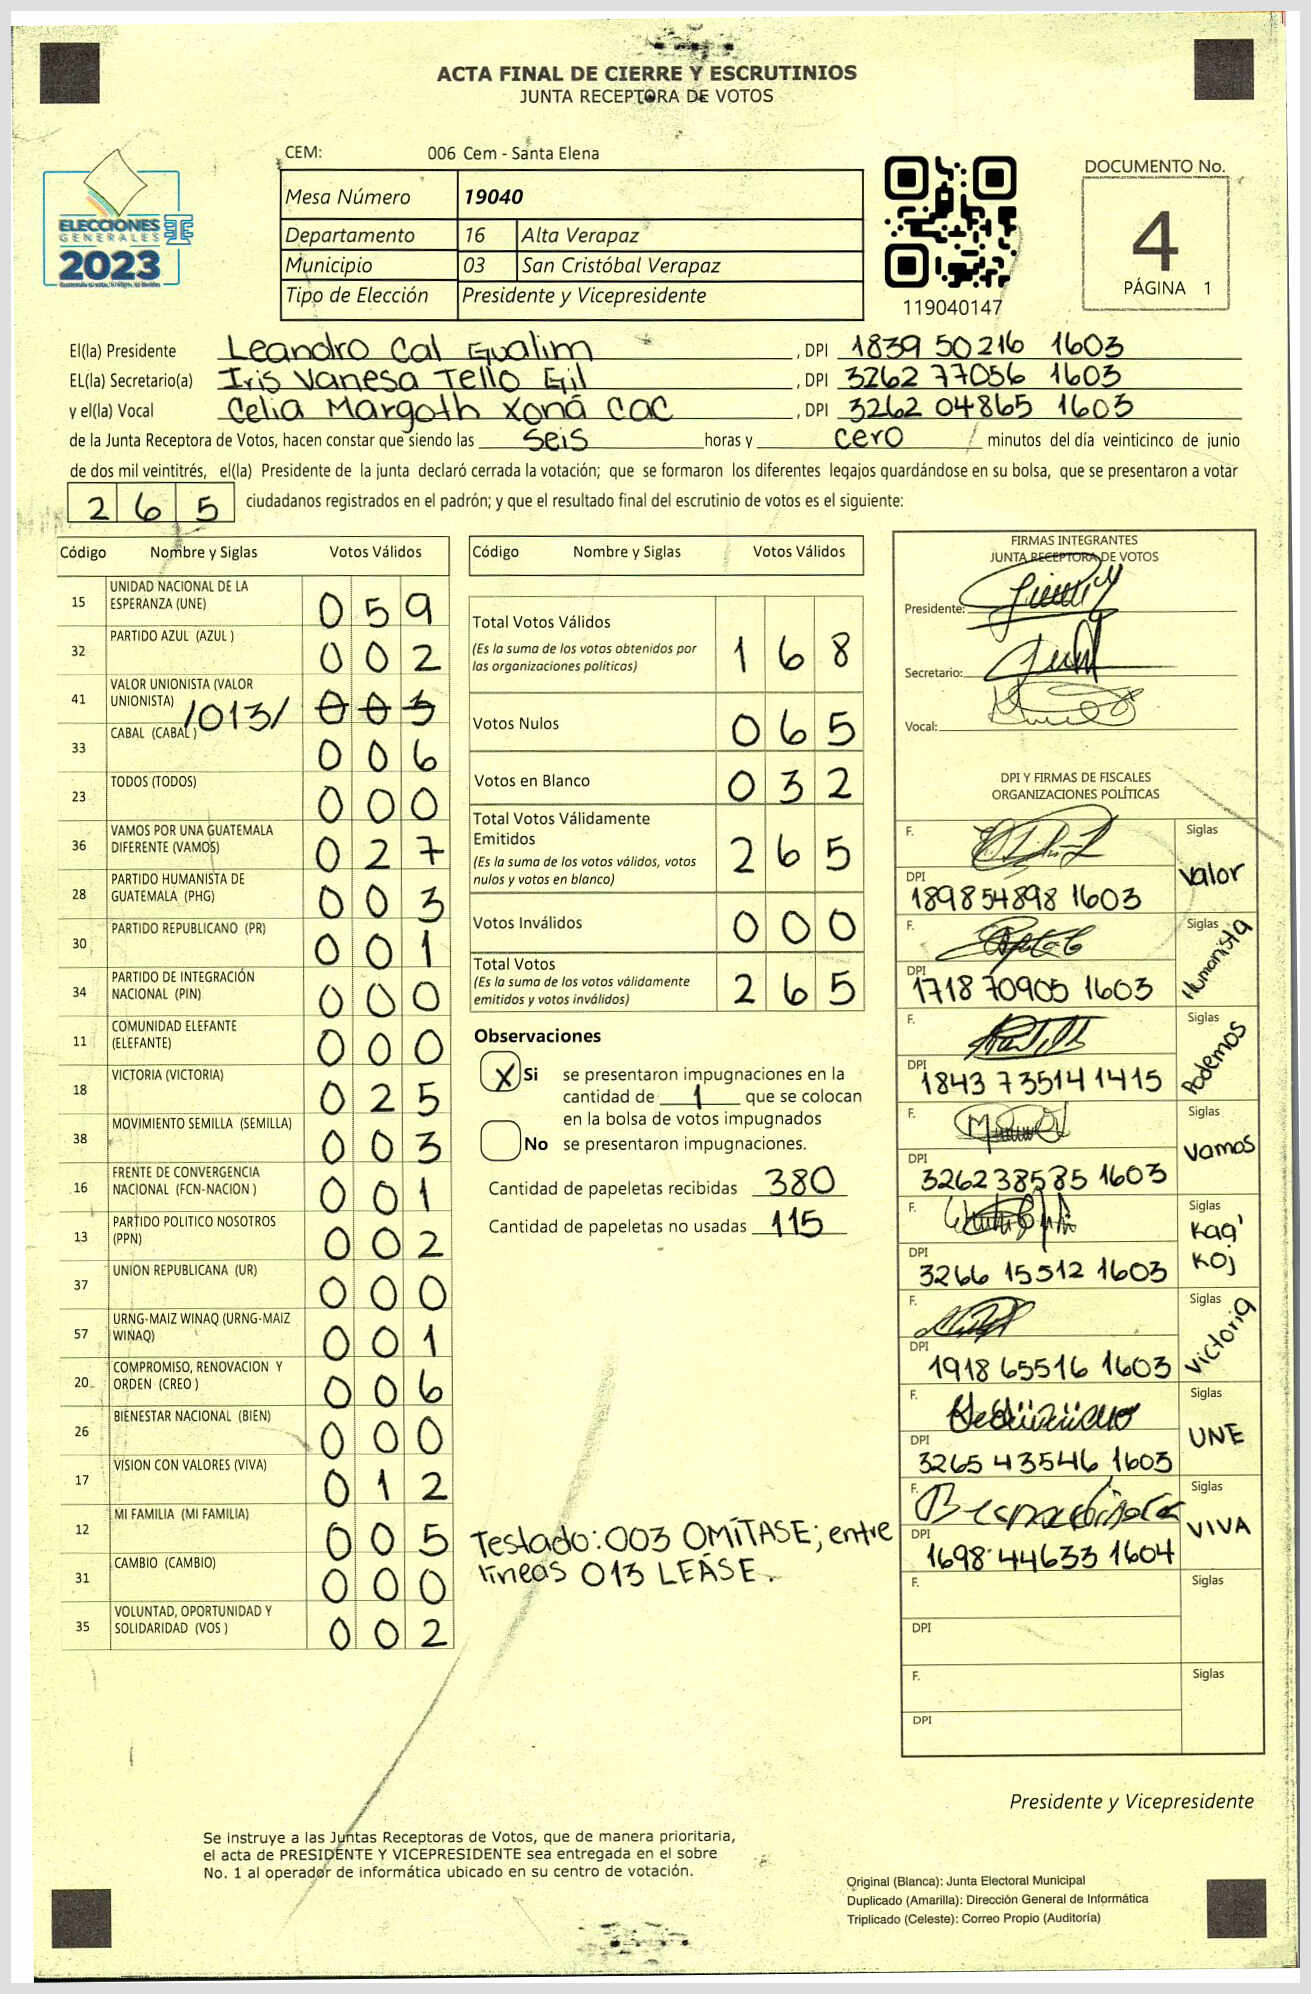 ACTA FINAL DE CIERRE Y ESCRUTINIOS
JUNTA RECEPTORA DE VOTOS
CEM: 006 Cem - Santa Elena
Mesa Número 19040
Departamento 16 Alta Verapaz
Municipio 03 San Cristóbal Verapaz
Tipo de Elección Presidente y Vicepresidente
ELECCIONES
GENERALES
2023
119040147
DOCUMENTO No.
4
PÁGINA 1
El(la) Presidente Leandro Cal Gualim, DPI 1839 50216 1603
EL(la) Secretario(a) Iris Vanesa Tello Gil, DPI 3262 77056 1603
y el(la) Vocal Celia Margoth Xoná Cac, DPI 3262 04865 1603
de la Junta Receptora de Votos, hacen constar que siendo las seis horas y cero minutos del día veinticinco de junio
de dos mil veintitrés, el(la) Presidente de la junta declaró cerrada la votación; que se formaron los diferentes legajos quardándose en su bolsa, que se presentaron a votar
265 ciudadanos registrados en el padrón; y que el resultado final del escrutinio de votos es el siguiente:
Código Nombre y Siglas Votos Válidos
15 UNIDAD NACIONAL DE LA ESPERANZA (UNE) 059
32 PARTIDO AZUL (AZUL ) 002
41 VALOR UNIONISTA (VALOR UNIONISTA) /013/ 003
33 CABAL (CABAL ) 006
23 TODOS (TODOS) 000
36 VAMOS POR UNA GUATEMALA DIFERENTE (VAMOS) 027
28 PARTIDO HUMANISTA DE GUATEMALA (PHG) 003
30 PARTIDO REPUBLICANO (PR) 001
34 PARTIDO DE INTEGRACIÓN NACIONAL (PIN) 000
11 COMUNIDAD ELEFANTE (ELEFANTE) 000
18 VICTORIA (VICTORIA) 025
38 MOVIMIENTO SEMILLA (SEMILLA) 003
16 FRENTE DE CONVERGENCIA NACIONAL (FCN-NACION ) 001
13 PARTIDO POLITICO NOSOTROS (PPN) 002
37 UNION REPUBLICANA (UR) 000
57 URNG-MAIZ WINAQ (URNG-MAIZ WINAQ) 001
20 COMPROMISO, RENOVACION Y ORDEN (CREO ) 006
26 BIENESTAR NACIONAL (BIEN) 000
17 VISION CON VALORES (VIVA) 012
12 MI FAMILIA (MI FAMILIA) 005
31 CAMBIO (CAMBIO) 000
35 VOLUNTAD, OPORTUNIDAD Y SOLIDARIDAD (VOS ) 002
Código Nombre y Siglas Votos Válidos
Total Votos Válidos 168
(Es la suma de los votos obtenidos por
las organizaciones políticas)
Votos Nulos 065
Votos en Blanco 032
Total Votos Válidamente
Emitidos 265
(Es la suma de los votos válidos, votos
nulos y votos en blanco)
Votos Inválidos 000
Total Votos 265
(Es la suma de los votos válidamente
emitidos y votos inválidos)
Observaciones
X Si se presentaron impugnaciones en la
cantidad de 1 que se colocan
en la bolsa de votos impugnados
No se presentaron impugnaciones.
Cantidad de papeletas recibidas 380
Cantidad de papeletas no usadas 115
Testado: 003 OMÍTASE; entre
líneas 013 LEÁSE.
FIRMAS INTEGRANTES
JUNTA RECEPTORA DE VOTOS
Presidente:
Secretario:
Vocal:
DPI Y FIRMAS DE FISCALES
ORGANIZACIONES POLÍTICAS
F. Siglas Valor
DPI 1898 54898 1603
F. Siglas Humanista
DPI 1718 70905 1603
F. Siglas Podemos
DPI 1843 73514 1415
F. Siglas Vamos
DPI 3262 38585 1603
F. Siglas Kaq' Koj
DPI 3266 15512 1603
F. Siglas Victoria
DPI 1918 65516 1603
F. Siglas UNE
DPI 3265 43546 1603
F. Siglas VIVA
DPI 1698 44633 1604
F. Siglas
DPI
F. Siglas
DPI
Presidente y Vicepresidente
Se instruye a las Juntas Receptoras de Votos, que de manera prioritaria,
el acta de PRESIDENTE Y VICEPRESIDENTE sea entregada en el sobre
No. 1 al operador de informática ubicado en su centro de votación.
Original (Blanca): Junta Electoral Municipal
Duplicado (Amarilla): Dirección General de Informática
Triplicado (Celeste): Correo Propio (Auditoría)